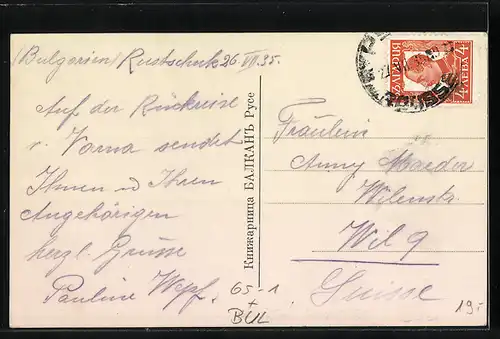 (Bulgarien) Rustschuk 26.VII.35.
Auf der Rückreise
v. Varna sendet
Ihnen und Ihren
Angehörigen
herzl. Grüsse
Pauline Wepf.
Книжарница БАЛКАНЪ Русе
БЪЛГАРИЯ
4 ЛЕВА 4
ROUSSE
Fräulein
Anny Maeder
Wil
Suisse
65-1
+
BUL
19.-